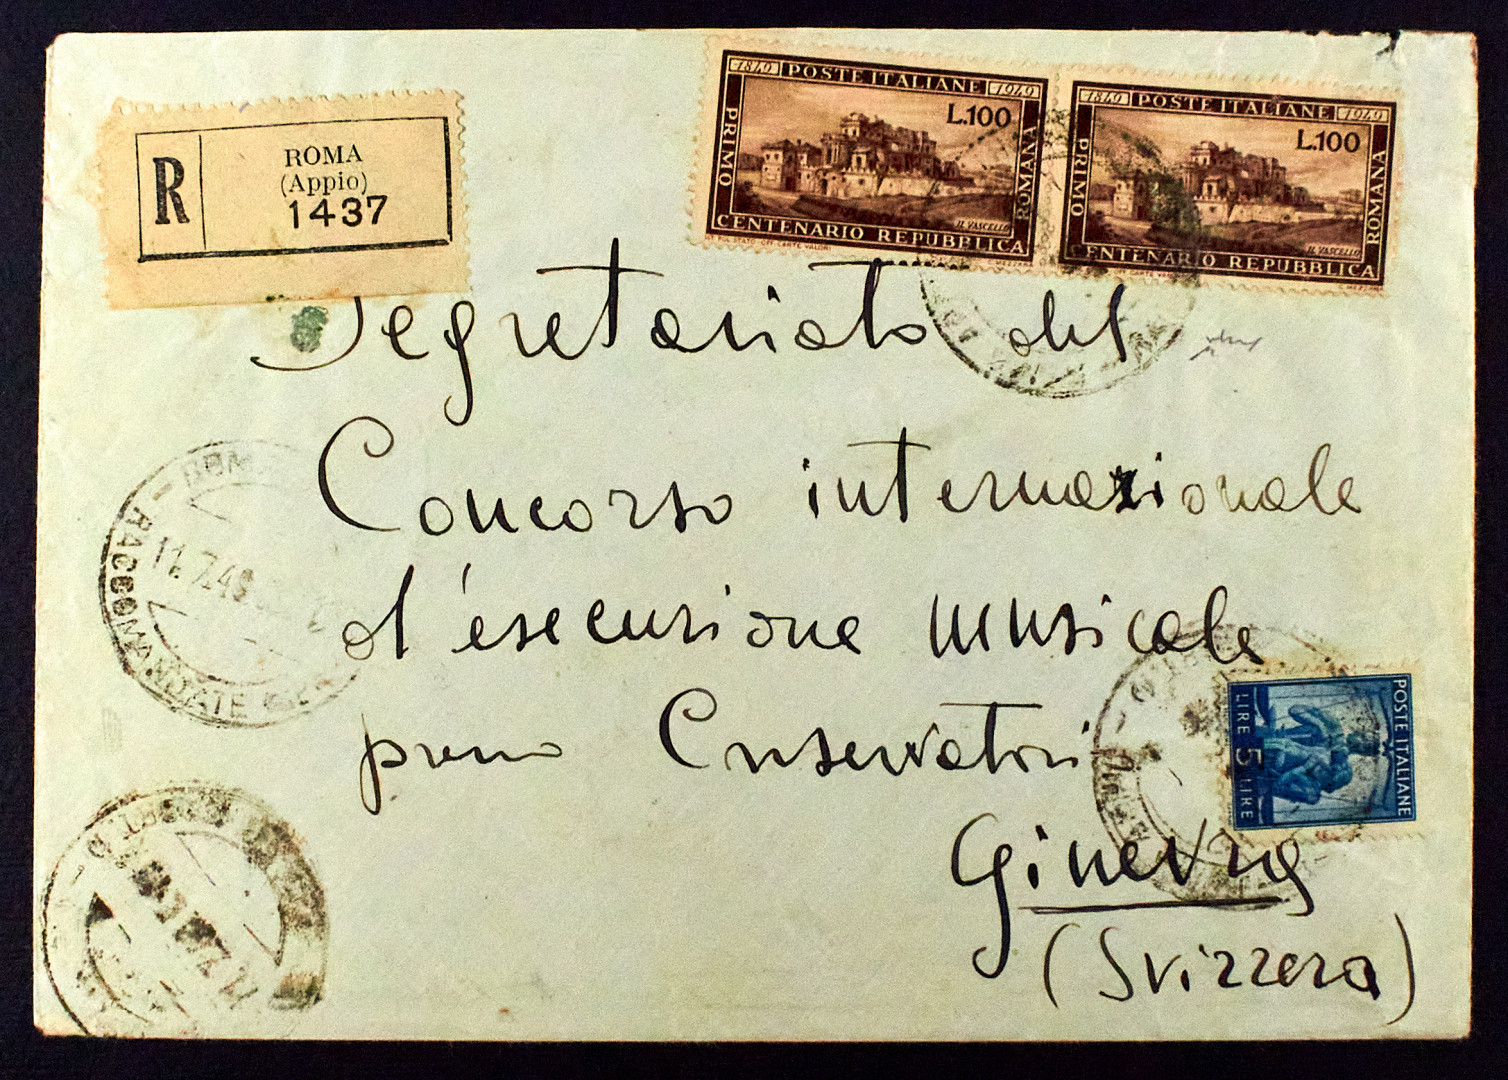 R
ROMA
(Appio)
1437
1849 POSTE ITALIANE 1949
L.100
PRIMO
ROMANA
IL VASCELLO
CENTENARIO REPUBBLICA
IST. POL. STATO OFF. CARTE VALORI
C. MEZZANA
1849 POSTE ITALIANE 1949
L.100
PRIMO
ROMANA
IL VASCELLO
CENTENARIO REPUBBLICA
C. MEZZANA
Segretariato del
Concorso internazionale
d'esecuzione musicale
presso Conservatori
Ginevra
(Svizzera)
ROMA
11.7.49
RACCOMANDATE
POSTE ITALIANE
LIRE 5 LIRE